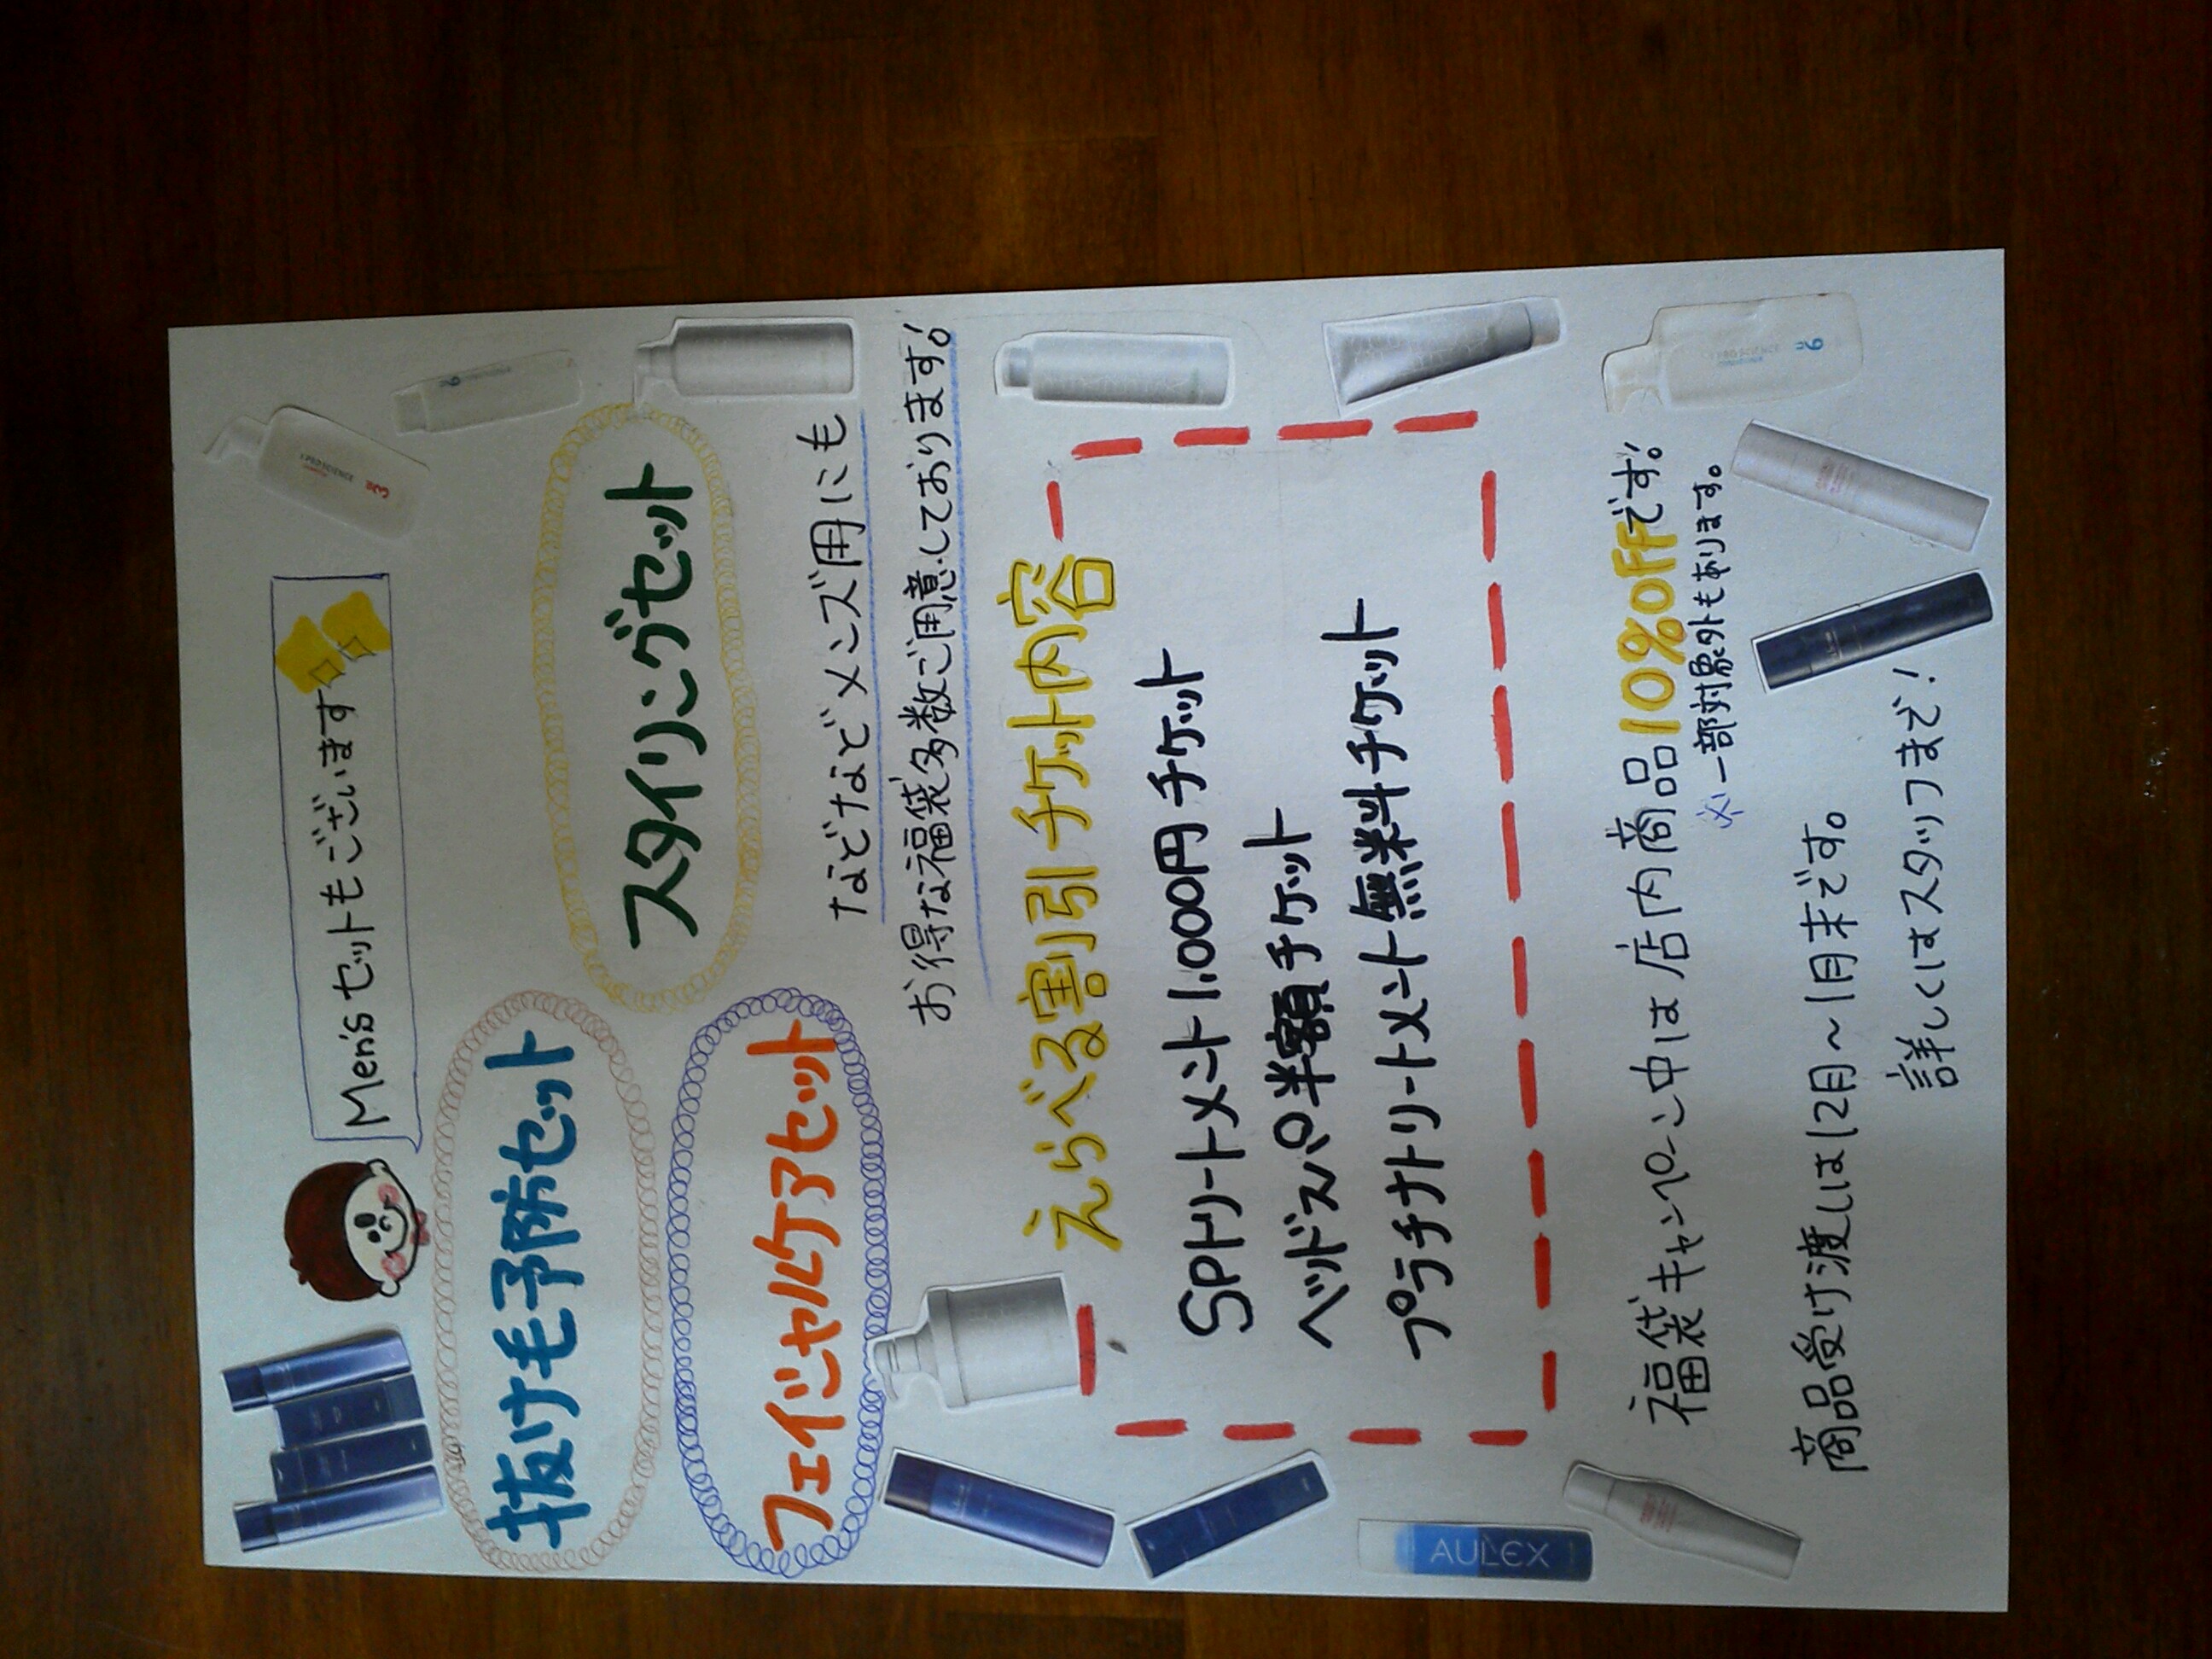 Men'sセットもございます
抜け毛予防セット
スタイリングセット
フェイシャルケアセット
などなどメンズ用にも
お得な福袋多数ご用意しております!
えらべる割引チケット内容
SPトリートメント1,000円チケット
ヘッドスパ半額チケット
プラチナトリートメント無料チケット
福袋キャンペーン中は店内商品10%OFFです!
※一部対象外もあります。
商品受け渡しは12月〜1月末です。
詳しくはスタッフまで!
AULEX